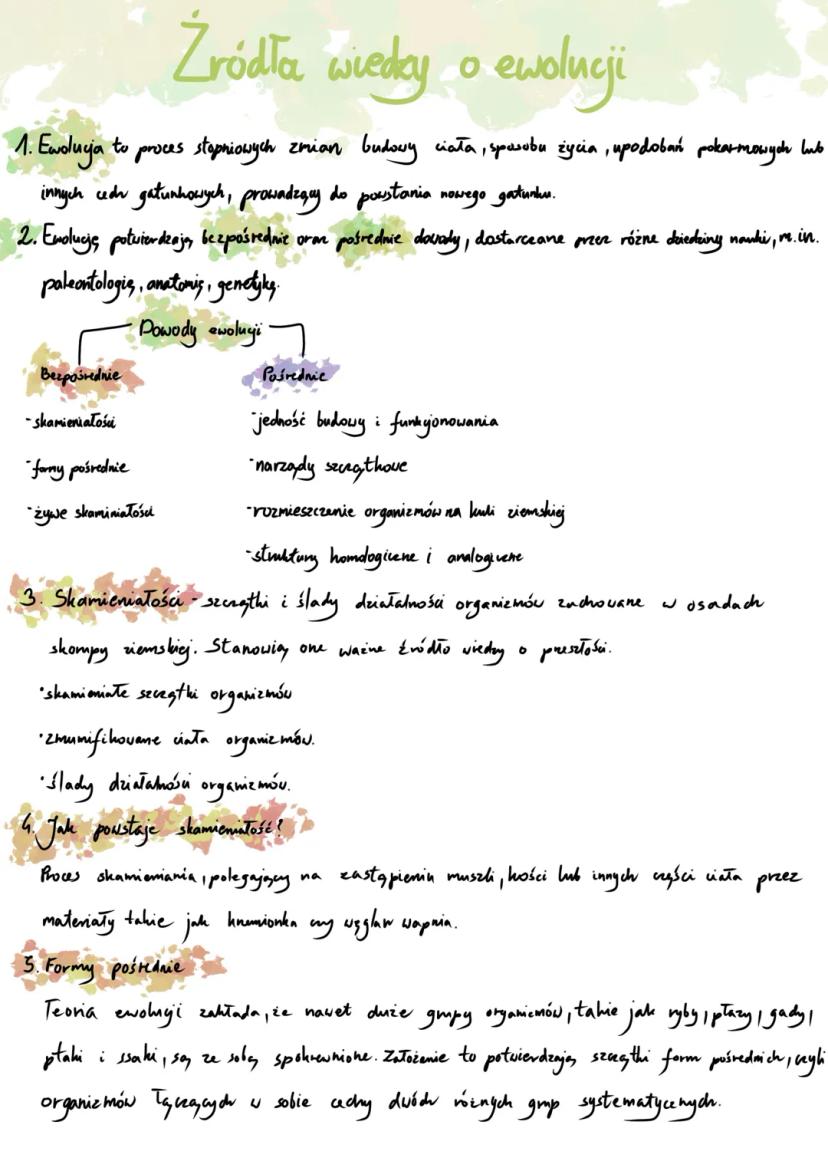 Źródła wiedzy o ewolucji
1. Ewolucja to proces stopniowych zmian budowy ciała, sposobu życia, upodobań pokarmowych lub
innych cech gatunkowych, prowadzący do powstania nowego gatunku.
2. Ewolucję potwierdzają bezpośrednie oraz pośrednie dowody, dostarczane przez różne dziedziny nauki, m.in.
paleontologię, anatomię, genetykę.
Dowody ewolucji
Bezpośrednie Pośrednie
-skamieniałości -jedność budowy i funkcjonowania
-formy pośrednie -narządy szczątkowe
-żywe skaminiałości -rozmieszczenie organizmów na kuli ziemskiej
-struktury homologiczne i analogiczne
3. Skamieniałości - szczątki i ślady działalności organizmów zachowane w osadach
skorupy ziemskiej. Stanowią one ważne źródło wiedzy o przeszłości.
•skamieniałe szczątki organizmów
•zmumifikowane ciała organizmów.
•ślady działalności organizmów.
4. Jak powstaje skamieniałość?
Proces skamieniania, polegający na zastąpieniu muszli, kości lub innych części ciała przez
materiały takie jak krzemionka czy węglan wapnia.
5. Formy pośrednie
Teoria ewolucji zakłada, że nawet duże grupy organizmów, takie jak ryby, płazy, gady,
ptaki i ssaki, są ze sobą spokrewnione. Założenie to potwierdzają szczątki form pośrednich, czyli
organizmów łączących w sobie cechy dwóch różnych grup systematycznych.